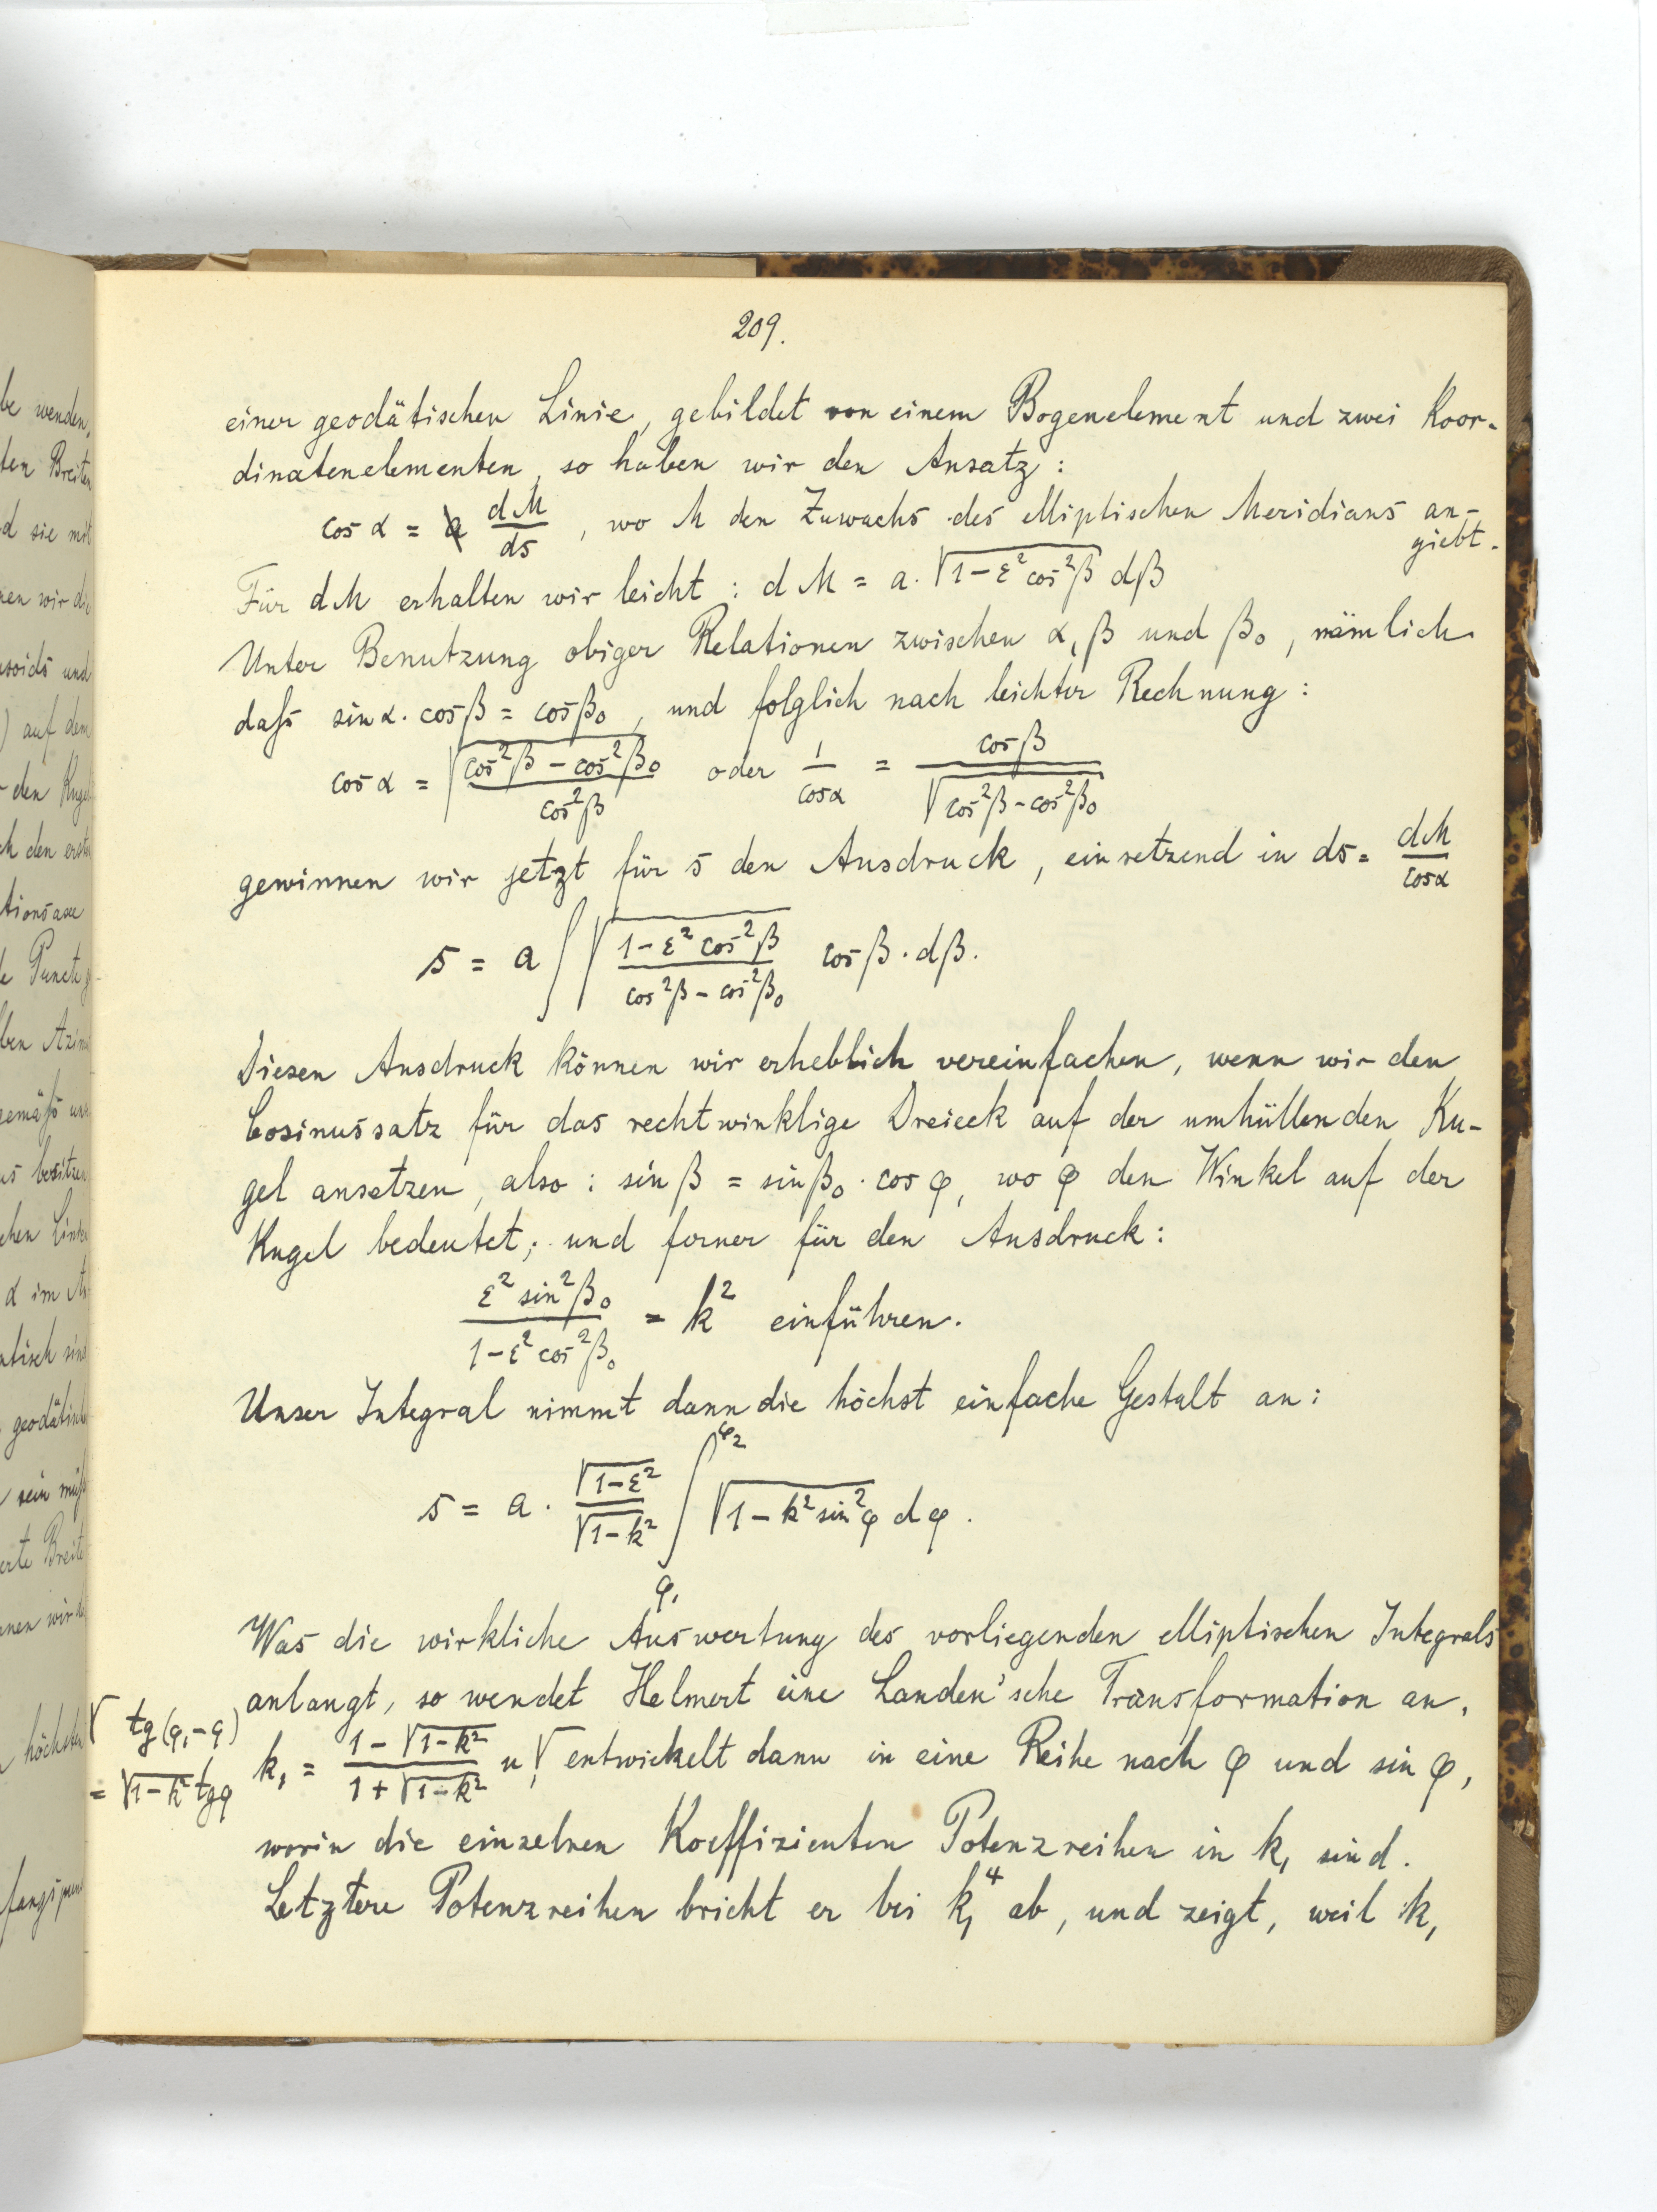 209.
einer geodätischen Linie, gebildet von einem Bogenelement und zwei Koor-
dinatenelementen, so haben wir den Ansatz:
cos α = dM/ds, wo M den Zuwachs des elliptischen Meridians an-
giebt.
Für dM erhalten wir leicht: dM = a·√(1-ε²cos²β) dβ
Unter Benutzung obiger Relationen zwischen α, β und β₀, nämlich
daſs sin α · cos β = cos β₀, und folglich nach leichter Rechnung:
cos α = √((cos²β - cos²β₀)/cos²β) oder 1/cos α = cos β/√(cos²β - cos²β₀)
gewinnen wir jetzt für s den Ausdruck, einsetzend in ds = dM/cos α
s = a ∫ √((1-ε² cos²β)/(cos²β - cos²β₀)) cos β · dβ.
Diesen Ausdruck können wir erheblich vereinfachen, wenn wir den
Cosinussatz für das rechtwinklige Dreieck auf der umhüllenden Ku-
gel ansetzen, also: sin β = sin β₀ · cos φ, wo φ den Winkel auf der
Kugel bedeutet; und ferner für den Ausdruck:
ε² sin²β₀/(1-ε² cos²β₀) = k² einführen.
Unser Integral nimmt dann die höchst einfache Gestalt an:
s = a · √(1-ε²)/√(1-k²) ∫_φ₁^φ₂ √(1-k² sin²φ) dφ.
Was die wirkliche Auswertung des vorliegenden elliptischen Integrals
anlangt, so wendet Helmert eine Landen'sche Transformation an,
k₁ = (1-√(1-k²))/(1+√(1-k²)) u,√ entwickelt dann in eine Reihe nach φ und sin φ,
√ tg(φ₁-φ)
= √(1-k²) tgφ
worin die einzelnen Koeffizienten Potenzreihen in k₁ sind.
Letztere Potenzreihen bricht er bei k₁⁴ ab, und zeigt, weil k₁
be wenden,
ten Breiten
d sie mit
nen wir die
) auf dem
den Kugel
tionsaxe
ben Azim
gemäſs
us besitzen
α im
geodätisch
nen wir
höchsten